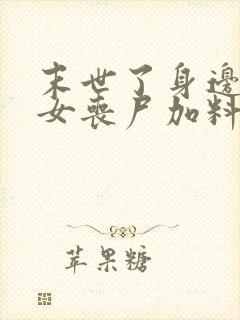 末世了身邊
女喪尸加料
苹果糖